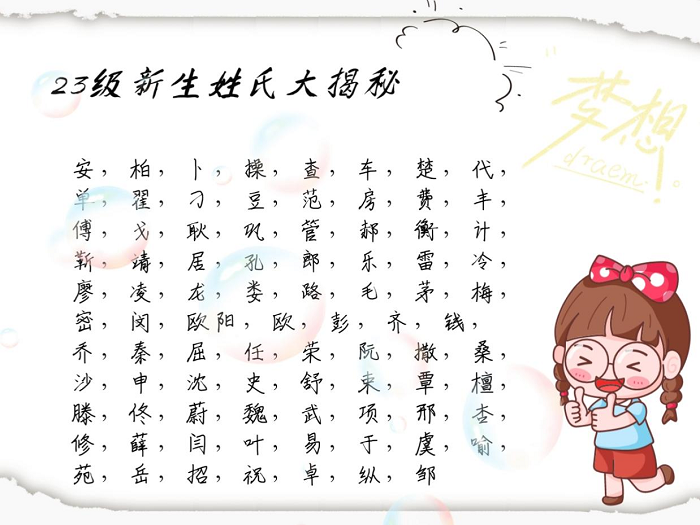 23级新生姓氏大揭秘
梦想
draem
安，柏，卜，操，查，车，楚，代，
单，翟，刁，豆，范，房，费，丰，
傅，戈，耿，巩，管，郝，衡，计，
靳，靖，居，孔，郎，乐，雷，冷，
廖，凌，龙，娄，路，毛，茅，梅，
密，闵，欧阳，欧，彭，齐，钱，
乔，秦，屈，任，荣，阮，撒，桑，
沙，申，沈，史，舒，束，覃，檀，
滕，佟，蔚，魏，武，项，邢，杏，
修，薛，闫，叶，易，于，虞，喻，
苑，岳，招，祝，卓，纵，邹